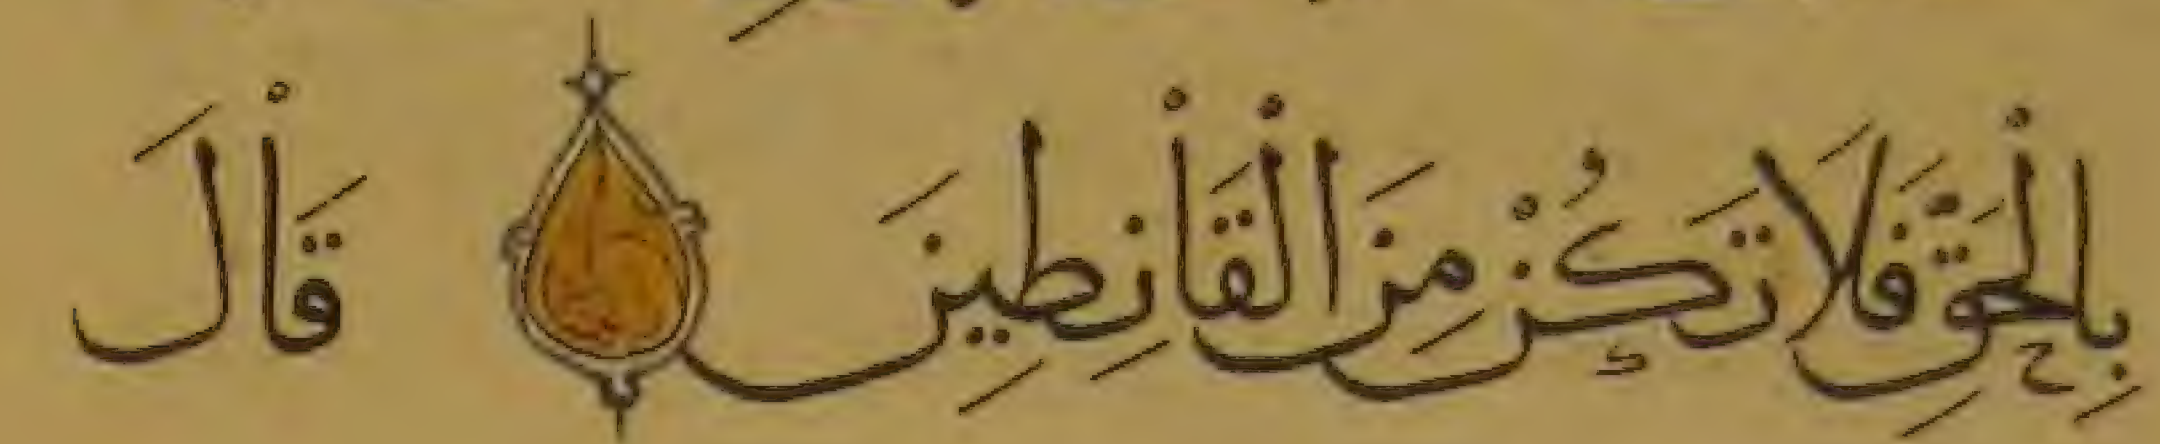 بِالْحَقِّ فَلَا تَكُنْ مِنَ الْقَانِطِينَ قَالَ